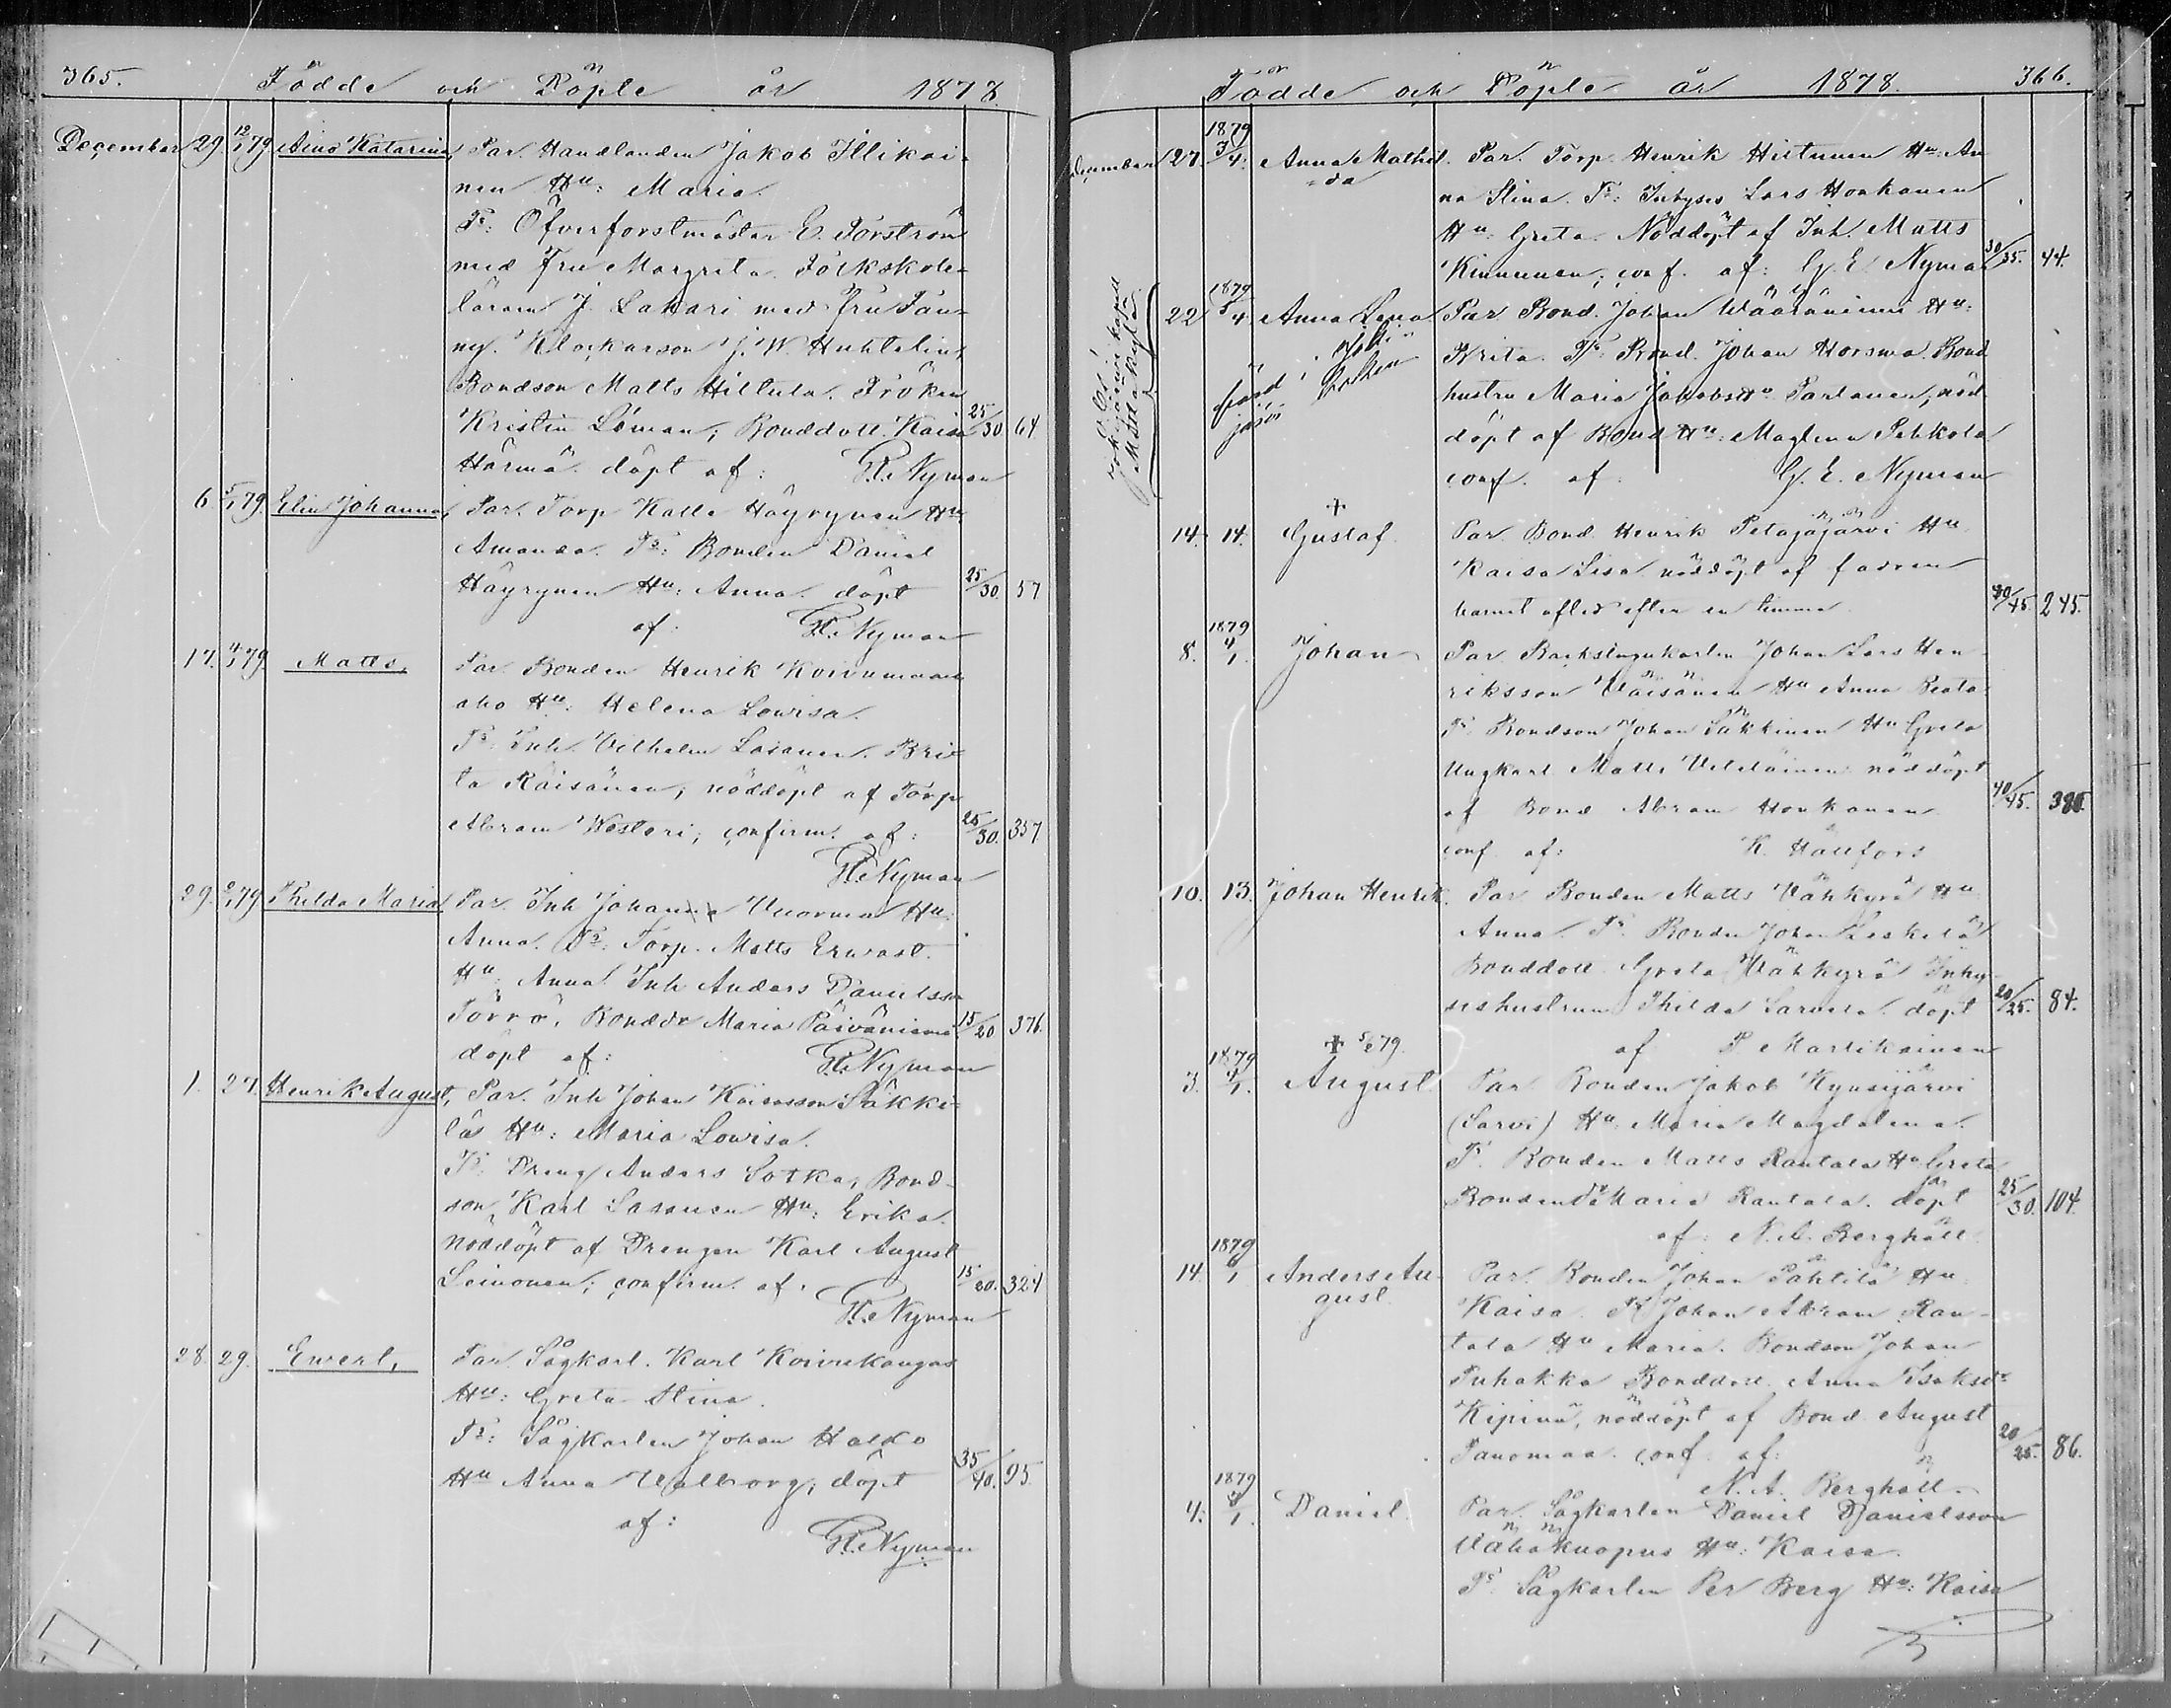 365. Födde och Döpte år 1878.
December 29. 12/1 79 Aino Katarina, Par. Handlanden Jakob Illikai-
nen Hu: Maria.
Ts: Öfverforstmästar E. Forström
med Fru Margreta. Folkskole-
läraren J. Lakari med Fru Fan-
ny. Klockarson J. W. Huhtelin,
Bondson Matts Hiltula. Fröken
Kristin Löman, Bonddott. Kaisa 25/30 64.
Härmä. döpt af: H. Nyman
6. 5/1 79. Elin Johanna, Par. Torp Kalle Häyrynen Hu:
Amanda. Ts: Bonden Daniel
Häyrynen Hu: Anna. döpt 25/30. 57
af: H. Nyman
17. 4/1 79 Matts, Par. Bonden Henrik Koivumaan
aho Hu: Helena Lovisa.
Ts: Inh. Vilhelm Lasanen. Bri-
ta Räisänen, nöddöpt af Torp
Abram Westeri; confirm. af: 25/30. 357.
H. Nyman
29. 2/1 79 Thilda Maria Par. Inh Johan Vuorma Hu:
Anna. Ts: Torp. Matts Erwast.
Hu: Anna Inh Anders Danielsson
Törrö, Bonddr Maria Päivänismaa 15/20 376.
döpt af: H. Nyman
1. 27. Henrik August, Par. Inh Johan Kaisasson Säkki-
lä Hu: Maria Lovisa.
Ts: Dreng Anders Sotka, Bond-
son Karl Lasanen Hu: Erika.
nöddöpt af Drengen Karl August
Leinonen; confirm. af. 15/20. 324
H. Nyman
28. 29. Ewert, Par. Sågkarl. Karl Koivukangas
Hu: Greta Stina.
Ts: Sågkarlen Johan Halko
Hu Anna Walborg; döpt 35/40. 95.
af: H. Nyman
Födde och Döpte år 1878. 366.
December 27. 1879 3/4. Anna Mathil- Par. Torp Henrik Hiltunen Hu: An-
da na Stina. Ts: Inhyses Lars Honkanen
Hu: Greta. Nöddöpt af Inh. Matts
Kinnunen; conf. af: G. E. Nyman 30/35. 44.
22 1879 /4 Anna Lena Par Bond. Johan Wääräniemi Hu:
född i Brita. Ts: Bond. Johan Horsma. Bond
hustru Maria Jakobsdr Partanen, nöd-
döpt af Bond Hu: Maglena Pehkola
conf. af: G. E. Nyman
14. 14. + Gustaf Par. Bond. Henrik Petajäjärvi Hu
Kaisa Lisa nöddöpt af fadren
barnet afled efter en timma. 40/45. 245.
8. 1879 4/1. Johan Par Backstugukarlen Johan Lars Hen-
riksson Väisänen Hu Anna Beata
Ts. Bondson Johan Säkkinen Hu Greta
Ungkarl Matts Veteläinen nöddöpt
af Bond Abram Honkanen 40/45. 380.
conf. af: K. Hällfors
10. 13. Johan Henrik. Par Bonden Matts Vähkyrä Hu
Anna. Ts. Bonden Johan Leskelä
Bonddott. Greta Wähkyrä Inhy-
seshustrun Thilda Sarvela. döpt 20/25. 84.
+ 5/2 79. af P Martikainen
3. 1879 4/1. August Par Bonden Jakob Kynsijärvi
(Sarvi) Hu: Maria Magdalena.
Ts. Bonden Matts Rantala Hu Greta
Bondendr Maria Rantala. döpt 25/30. 104.
af: N. A. Berghäll.
14. 1879 6/1 Anders Au- Par. Bonden Johan Pähtilä Hu
gust Kaisa. Ts Johan Abram Ran-
tala Hu Maria. Bondson Johan
Puhakka Bonddott. Anna Isaksdr
Kipinä, nöddöpt af Bond August
Tanomaa. conf. af: 20/25. 86.
N. A. Berghäll.
4. 1879 4/1. Daniel. Par. Sågkarlen Daniel Danielsson
Vähäkuopus Hu: Kaisa.
Ts. Sågkarlen Per Berg Hu: Kaisa